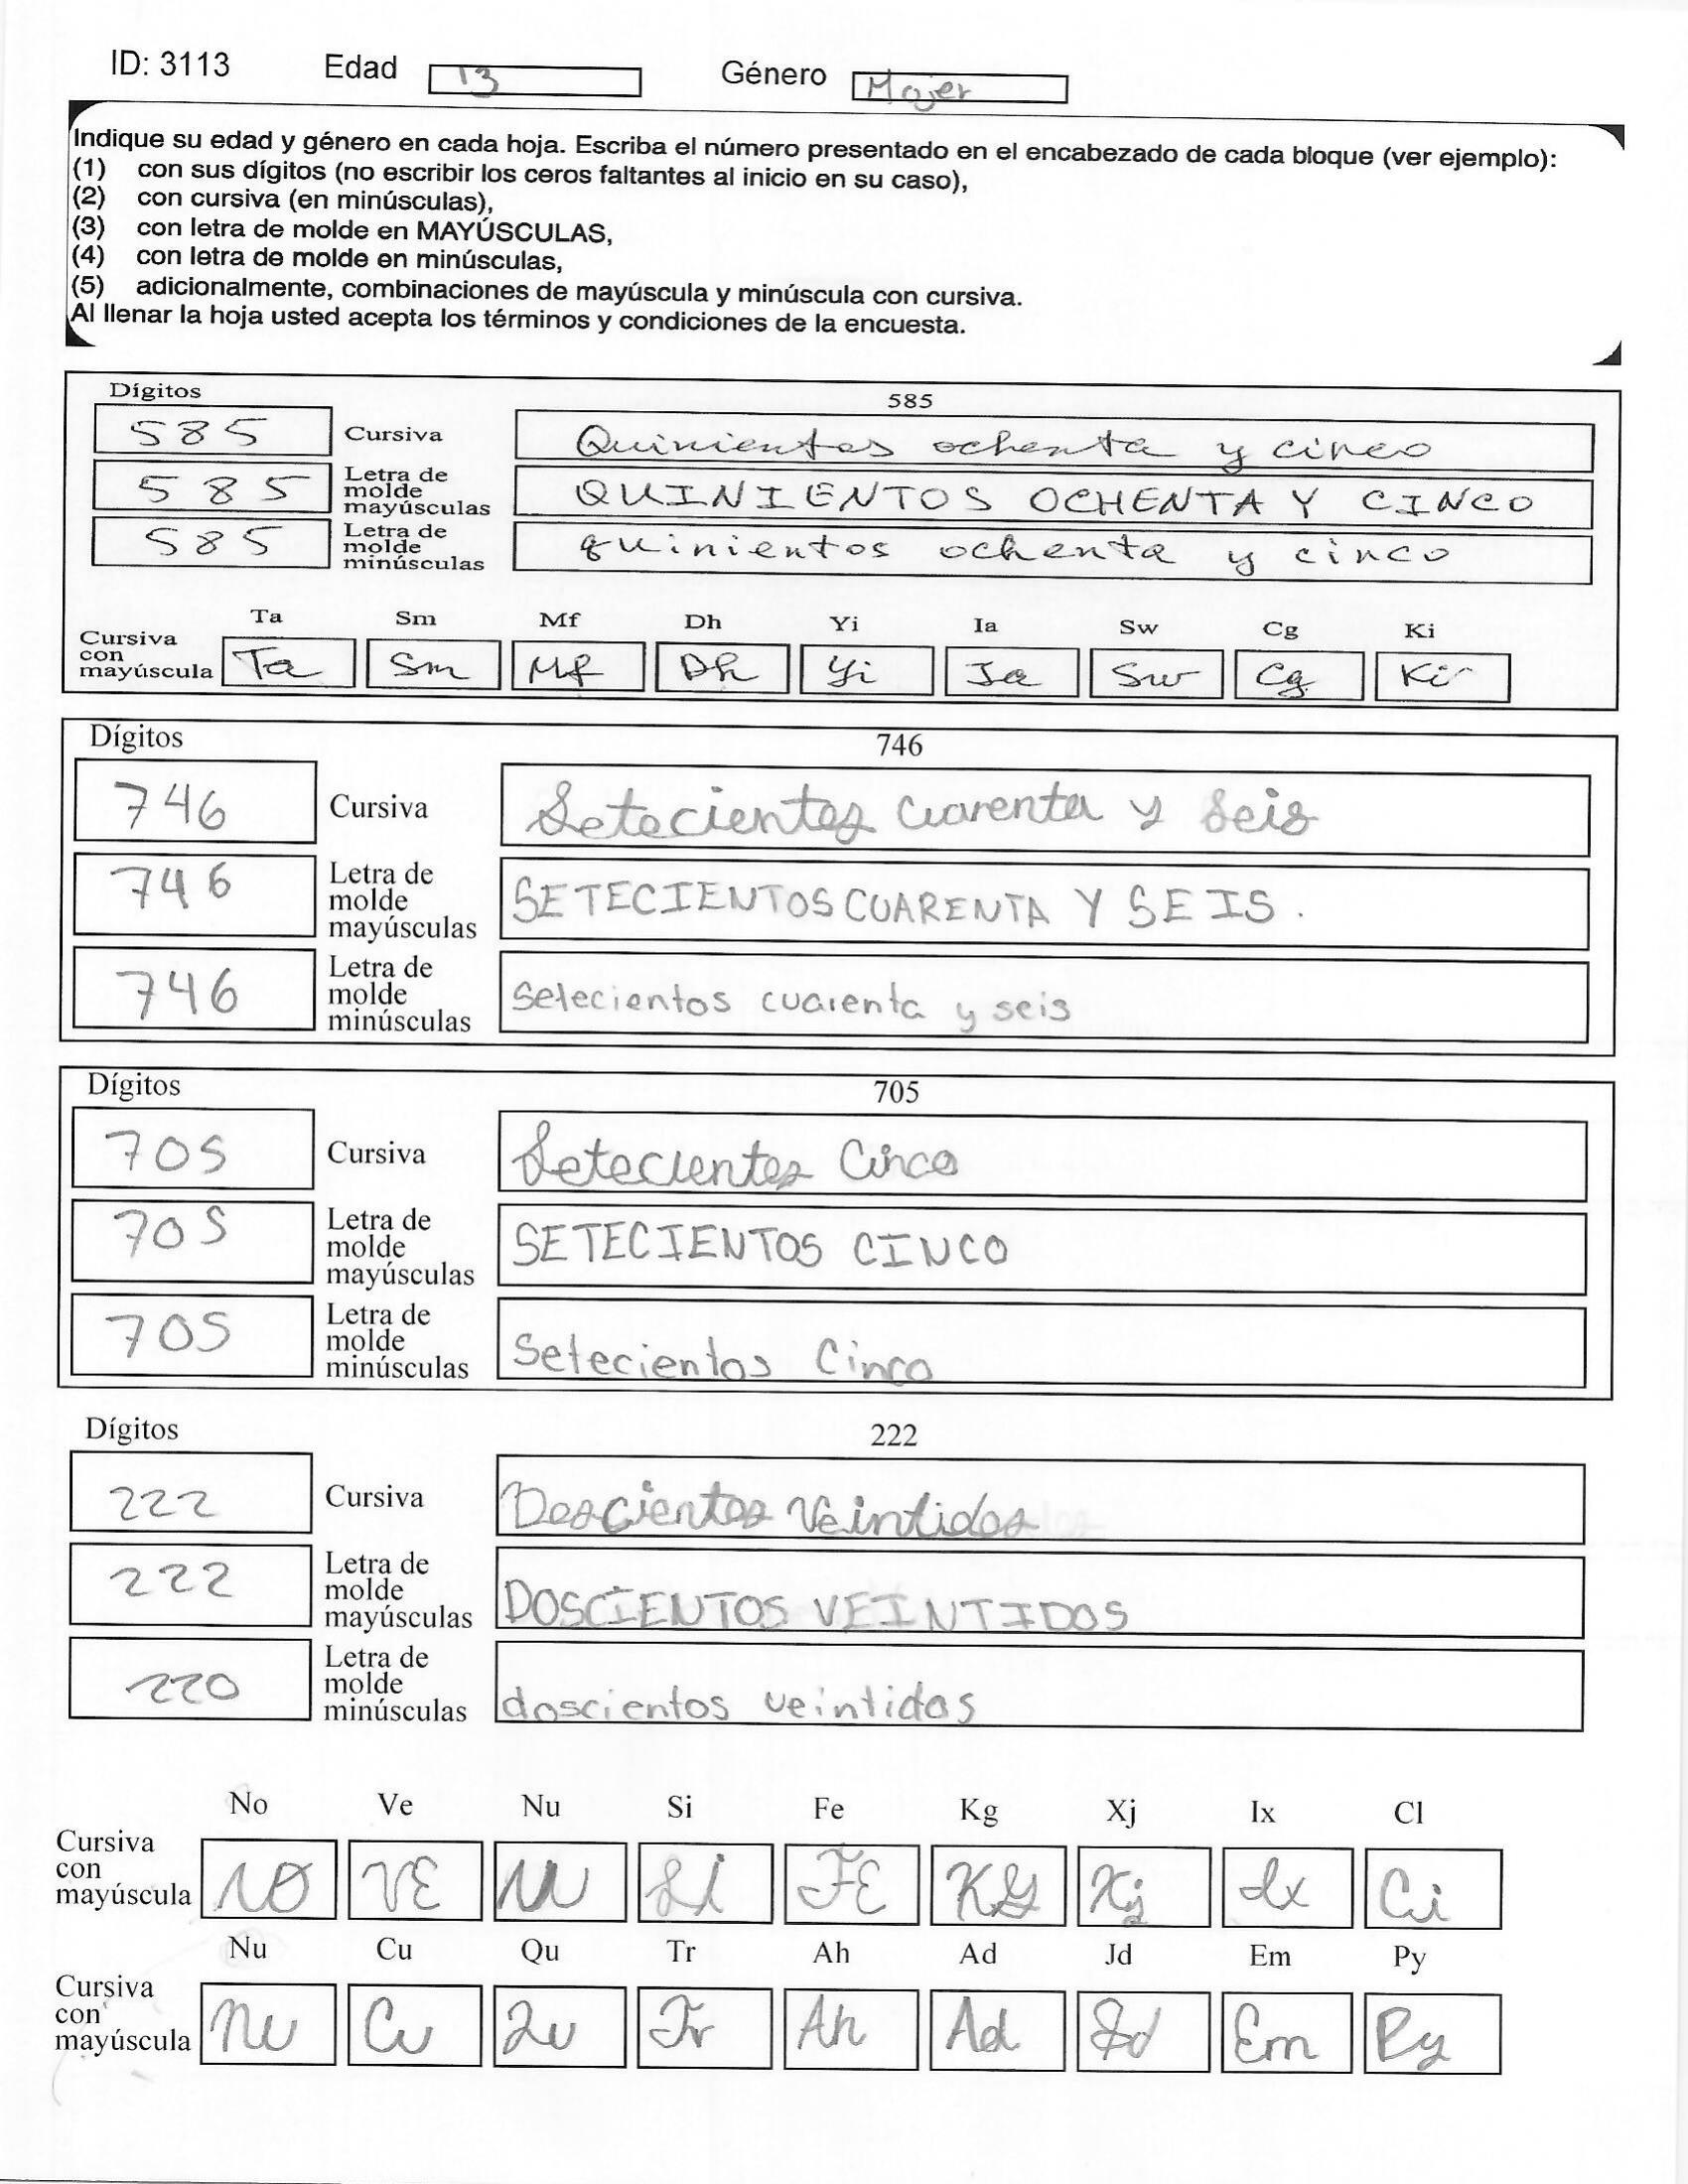 ID: 3113 Edad 13 Género Mujer
Indique su edad y género en cada hoja. Escriba el número presentado en el encabezado de cada bloque (ver ejemplo):
(1) con sus dígitos (no escribir los ceros faltantes al inicio en su caso),
(2) con cursiva (en minúsculas),
(3) con letra de molde en MAYÚSCULAS,
(4) con letra de molde en minúsculas,
(5) adicionalmente, combinaciones de mayúscula y minúscula con cursiva.
Al llenar la hoja usted acepta los términos y condiciones de la encuesta.
Dígitos 585
585 Cursiva Quinientos ochenta y cinco
585 Letra de molde mayúsculas QUINIENTOS OCHENTA Y CINCO
585 Letra de molde minúsculas quinientos ochenta y cinco
Ta Sm Mf Dh Yi Ia Sw Cg Ki
Cursiva con mayúscula Ta Sm Mf Dh Yi Ia Sw Cg Ki
Dígitos 746
746 Cursiva Setecientos Cuarenta y Seis
746 Letra de molde mayúsculas SETECIENTOS CUARENTA Y SEIS.
746 Letra de molde minúsculas setecientos cuarenta y seis
Dígitos 705
705 Cursiva Setecientos Cinco
705 Letra de molde mayúsculas SETECIENTOS CINCO
705 Letra de molde minúsculas Setecientos Cinco
Dígitos 222
222 Cursiva Doscientos Veintidos
222 Letra de molde mayúsculas DOSCIENTOS VEINTIDOS
220 Letra de molde minúsculas doscientos veintidos
No Ve Nu Si Fe Kg Xj Ix Cl
Cursiva con mayúscula NO VE NU Si FE KG Xj Ix Ci
Nu Cu Qu Tr Ah Ad Jd Em Py
Cursiva con mayúscula Nu Cu Qu Tr Ah Ad Jd Em Py